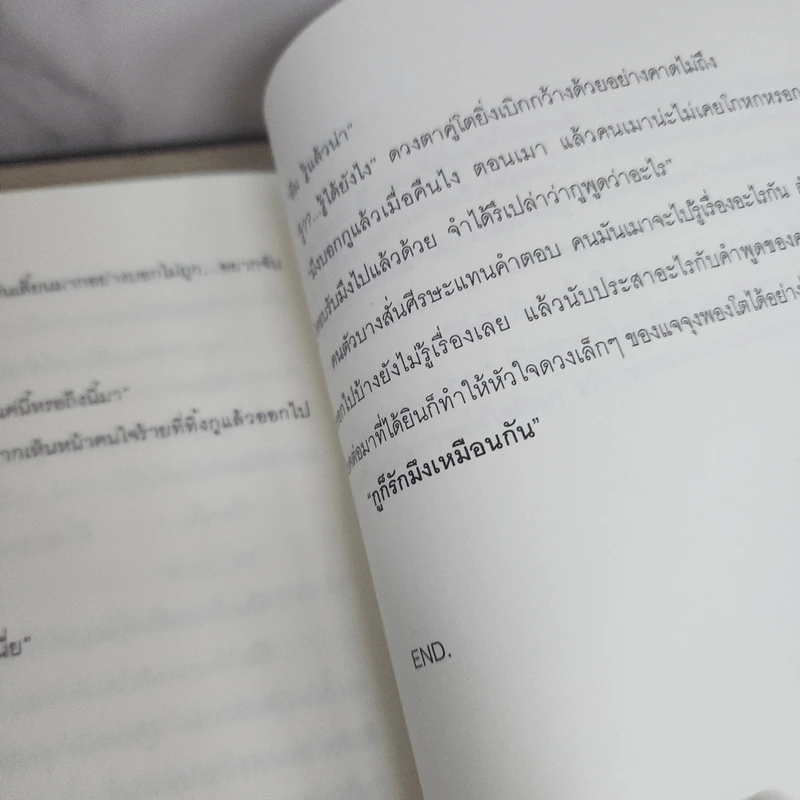 นเตี้ยนมากอย่างบอกไม่ถูก... อยากจับ
แค่นี้หรอถึงนี้มา"
ากเดินหน้าคนใจร้ายที่ทิ้งกูแล้วออกไป
นี่ย"
รู้แล้วน่า"
รู้ได้ยังไง" ดวงตาคู่โตยิ่งเบิกกว้างด้วยอย่างคาดไม่ถึง
บอกกูแล้วเมื่อคืนไง ตอนเมา แล้วคนเมาน่ะไม่เคยโกหกหรอก
รับมึงไปแล้วด้วย จำได้รึเปล่าว่ากูพูดว่าอะไร"
คนตัวบางสั่นศีรษะแทนคำตอบ คนมันเมาจะไปรู้เรื่องอะไรกัน
ไปบ้างยังไม่รู้เรื่องเลย แล้วนับประสาอะไรกับคำพูดของค
ต่อมาที่ได้ยินก็ทำให้หัวใจดวงเล็กๆ ของแจจุงพองโตได้อย่าง
"กูก็รักมึงเหมือนกัน"
END.